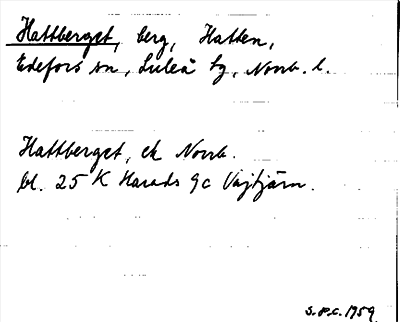 Hattberget, berg, Hatten,
Edefors sn, Luleå tg, Norrb. l.
Hattberget, ek Norrb.
bl. 25 K Harads 9c Vajtjärn.
S.P.C. 1959